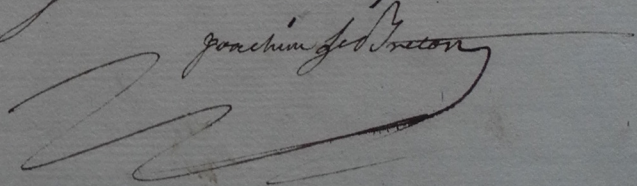 Joachim Le Breton